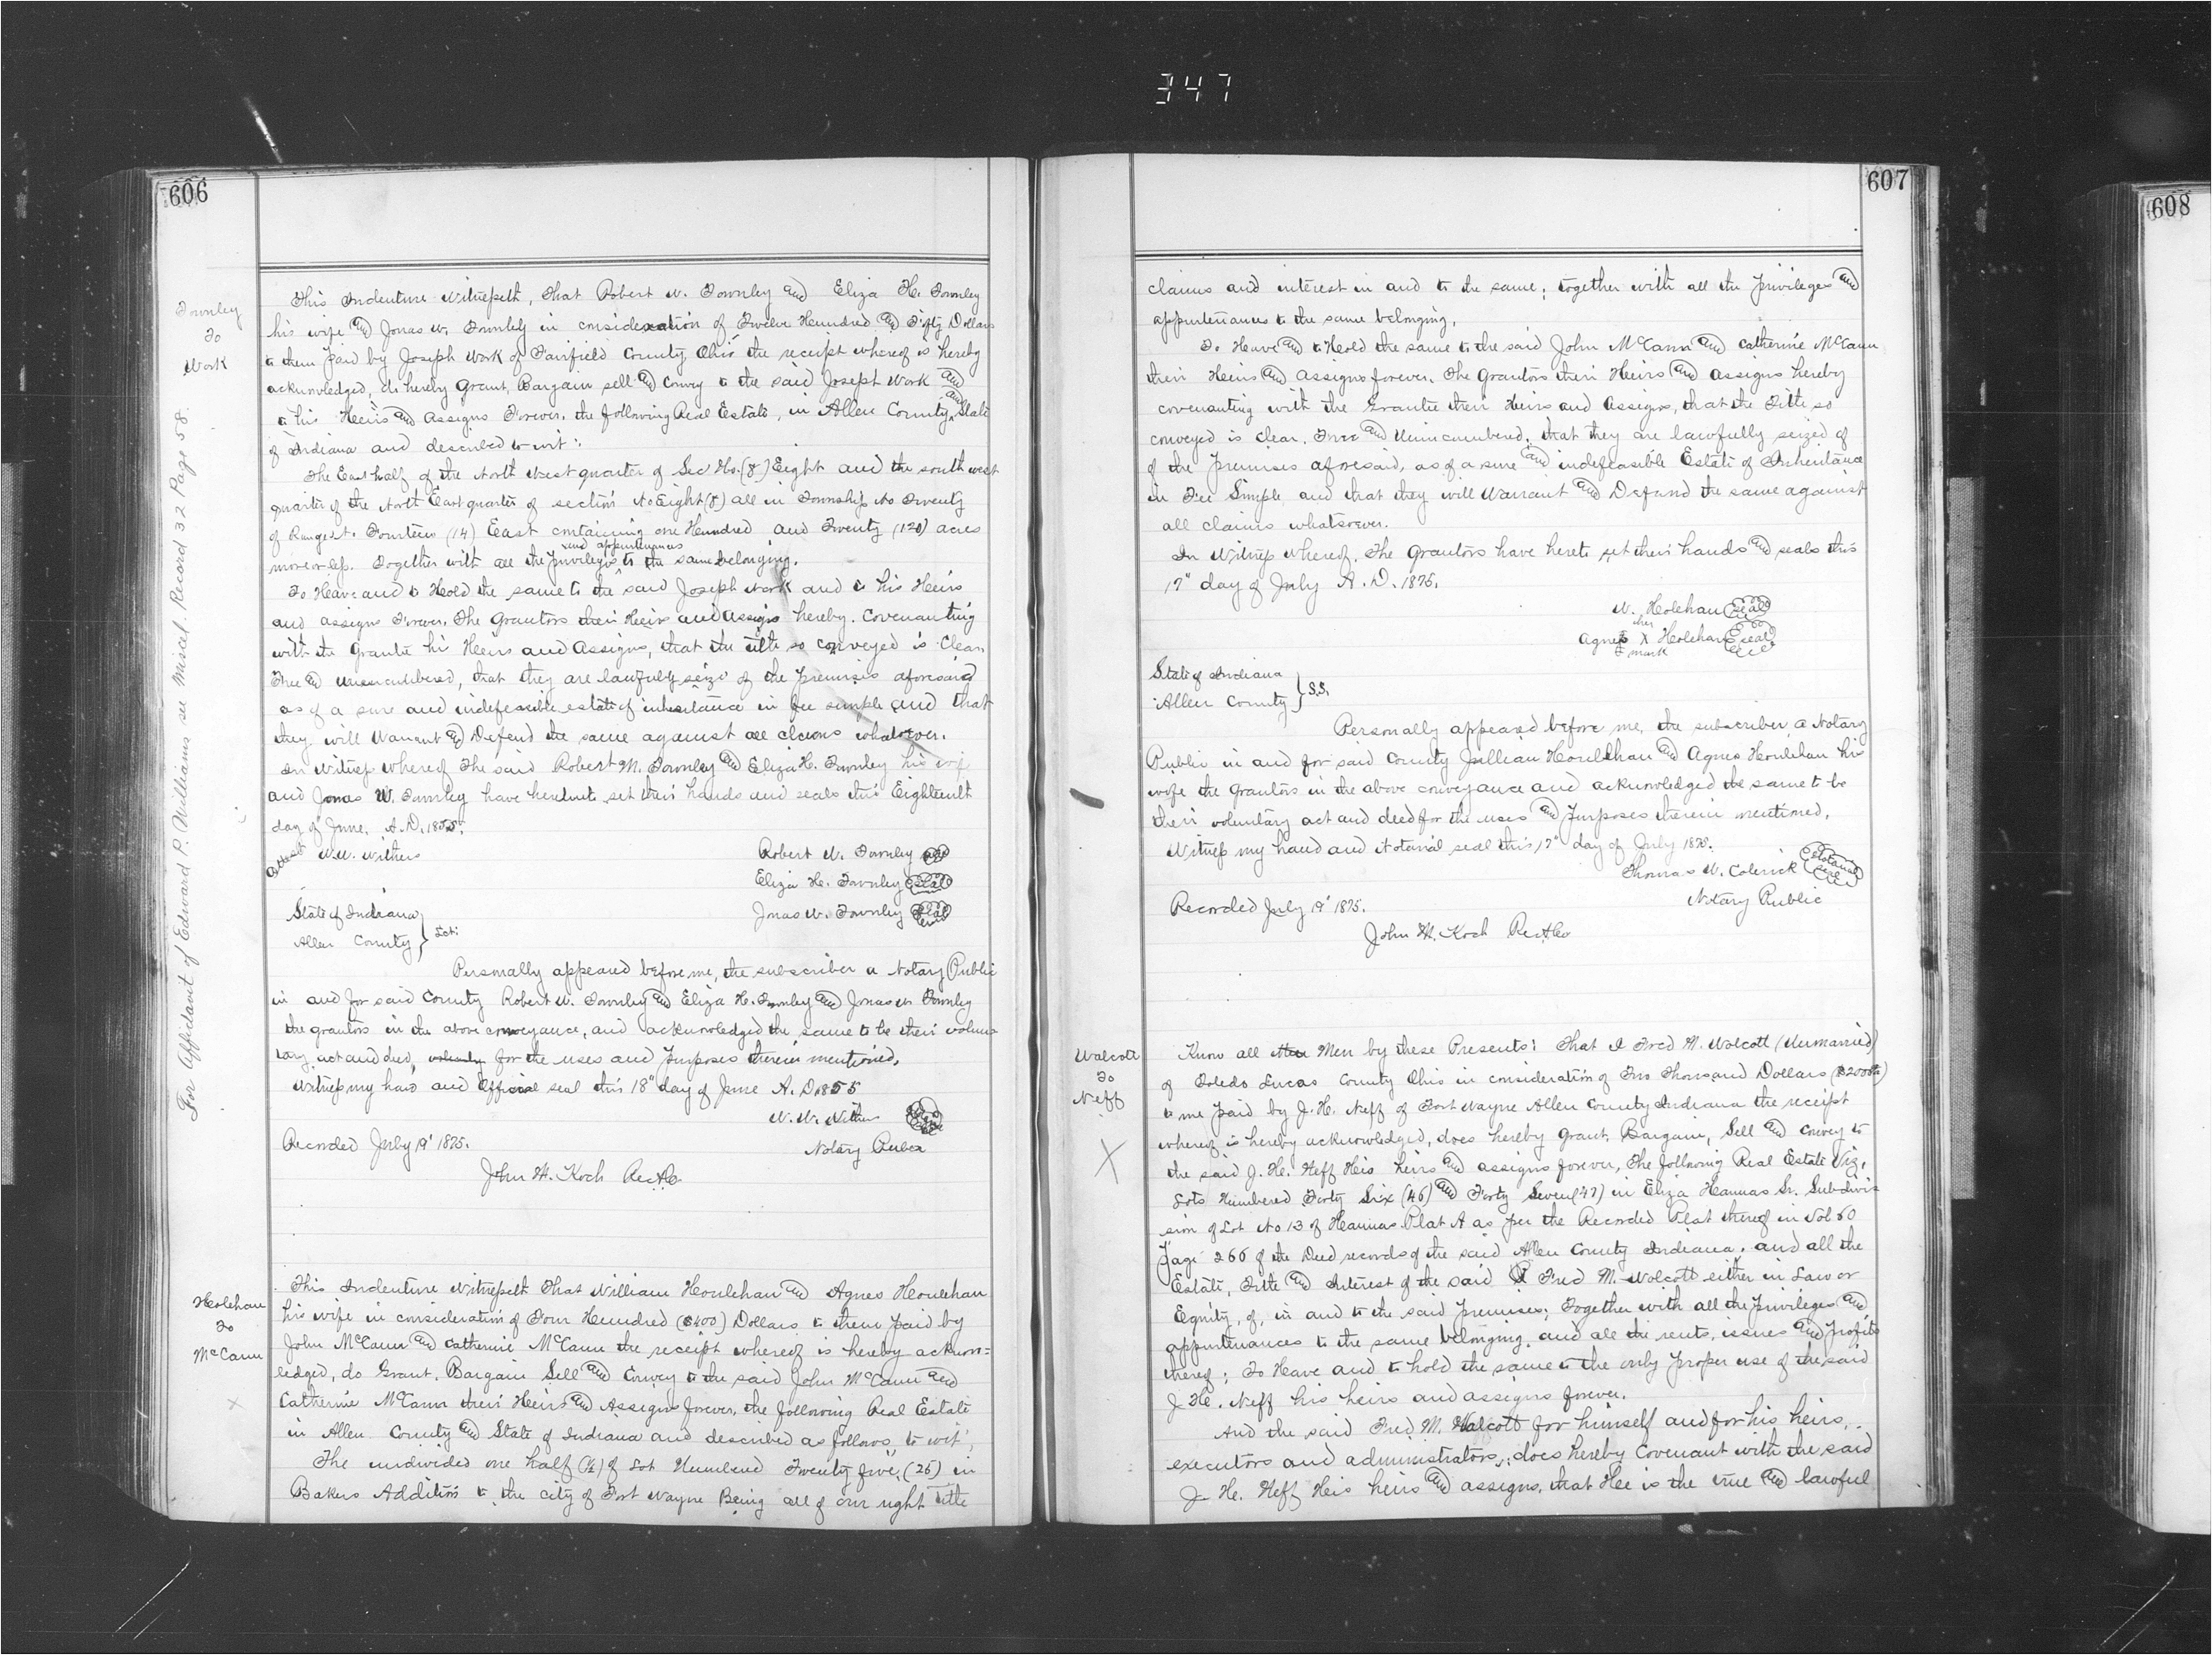 347
606
Townley
To
Work
For Affidavit of Edward P. Williams see Miscl. Record 32 Page 58.
This Indenture Witnesseth, That Robert W. Townley and Eliza H. Townley
his wife and Jonas W. Townley in consideration of Twelve Hundred and Fifty Dollars
to them paid by Joseph Work of Fairfield County Ohio the receipt whereof is hereby
acknowledged, do hereby Grant, Bargain sell and convey to the said Joseph Work and
to his Heirs and Assigns Forever, the following Real Estate, in Allen County and State
of Indiana and described to wit:
The East half of the North West quarter of Sec No. (8) Eight and the south west
quarter of the North East quarter of section No Eight (8) all in Township No Twenty
of Range No. Fourteen (14) East containing one Hundred and Twenty (120) acres
and appurtenances
more or less. Together with all the privileges to the same belonging.
To Have and to Hold the same to the said Joseph Work and to his Heirs
and assigns Forever. The Grantors their Heirs and Assigns hereby. Covenanting
with the Grantee his Heirs and Assigns, that the title so conveyed is Clear
Free and Unincumbered, that they are lawfully seize of the Premises aforesaid
as of a sure and indefeasible estate of inheritance in fee simple and that
they will Warrant and Defend the same against all claims whatsoever.
In Witness whereof The said Robert M. Townley and Eliza H. Townley his wife
and Jonas W. Townley have hereunto set their hands and seals this Eighteenth
day of June, A.D. 1855.
Attest W.W. Withers
Robert W. Townley seal
Eliza H. Townley seal
Jonas W. Townley seal
State of Indiana
Allen County } Sct:
Personally appeared before me, the subscriber a Notary Public
in and for said County Robert W. Townley and Eliza H. Townley and Jonas W Townley
the grantors in the above conveyance, and acknowledged the same to be their volun
tary act and deed, voluntary for the uses and Purposes therein mentioned.
Witness my hand and Official seal this 18" day of June A.D. 1855
W. W. Withers
Notary Public
Recorded July 19' 1875.
John M. Koch RecACo
Holehan
To
McCann
This Indenture Witnesseth That William Houlehan and Agnes Houlehan
his wife in consideration of Four Hundred ($400) Dollars to them paid by
John McCann and Catherine McCann the receipt whereof is hereby acknow=
ledged, do Grant, Bargain Sell and Convey to the said John McCann and
Catherine McCann their Heirs and Assigns forever, the following Real Estate
in Allen County and State of Indiana and described as follows, to wit;
The undivided one half (½) of Lot Numbered Twenty five, (25) in
Bakers Addition to the city of Fort Wayne Being all of our right title
607
claims and interest in and to the same; together with all the privileges and
appurtenances to the same belonging.
To Have and to Hold the same to the said John McCann and Catherine McCann
their Heirs and Assigns forever. The Grantors their Heirs and Assigns hereby
covenanting with the Grantee their Heirs and Assigns, that the Title so
conveyed is clear, Free and Unincumbered, that they are lawfully seized of
of the Premises aforesaid, as of a sure and indefeasible Estate of Inheritance
in Fee Simple, and that they will Warrant and Defend the same against
all claims whatsoever.
In Witness whereof, The Grantors have hereto set their hands and seals this
17" day of July A.D. 1875.
W. Holehan seal
her
Agnes X Holehan seal
mark
State of Indiana
Allen County } S.S.
Personally appeared before me, the subscriber, a Notary
Public in and for said County Jullian Houlehan and Agnes Houlehan his
wife the grantors in the above conveyance and acknowledged the same to be
their voluntary act and deed for the uses and Purposes therein mentioned.
Witness my hand and Notarial seal this 17" day of July 1875.
Thomas W. Colerick Notarial Seal
Notary Public
Recorded July 19' 1875.
John M. Koch RecACo
Walcott
To
Neff
X
Know all Men by these Presents: That I Fred M. Wolcott (Unmarried)
of Toledo Lucas County Ohio in consideration of Two Thousand Dollars ($2000)
to me paid by J. H. Neff of Fort Wayne Allen County Indiana the receipt
whereof is hereby acknowledged, does hereby Grant, Bargain, Sell and convey to
the said J. H. Neff His heirs and assigns forever, The following Real Estate Viz,
Lots Numbered Forty Six (46) and Forty Seven (47) in Eliza Hannas Sr. Subdivi
sion of Lot No 13 of Hannas Plat A as per the Recorded Plat thereof in Vol 60
Page 266 of the Deed records of the said Allen County Indiana. and all the
Estate, Title and Interest of the said Fred M. Wolcott either in Law or
Equity, of, in and to the said premises; Together with all the privileges and
appurtenances to the same belonging, and all the rents, issues and profits
thereof; To Have and to hold the same to the only proper use of the said
J. H. Neff his heirs and assigns forever.
And the said Fred M. Walcott for himself and for his heirs,
executors and administrators, does hereby Covenant with the said
J. H. Neff His heirs and assigns, that Hee is the true and lawful
608